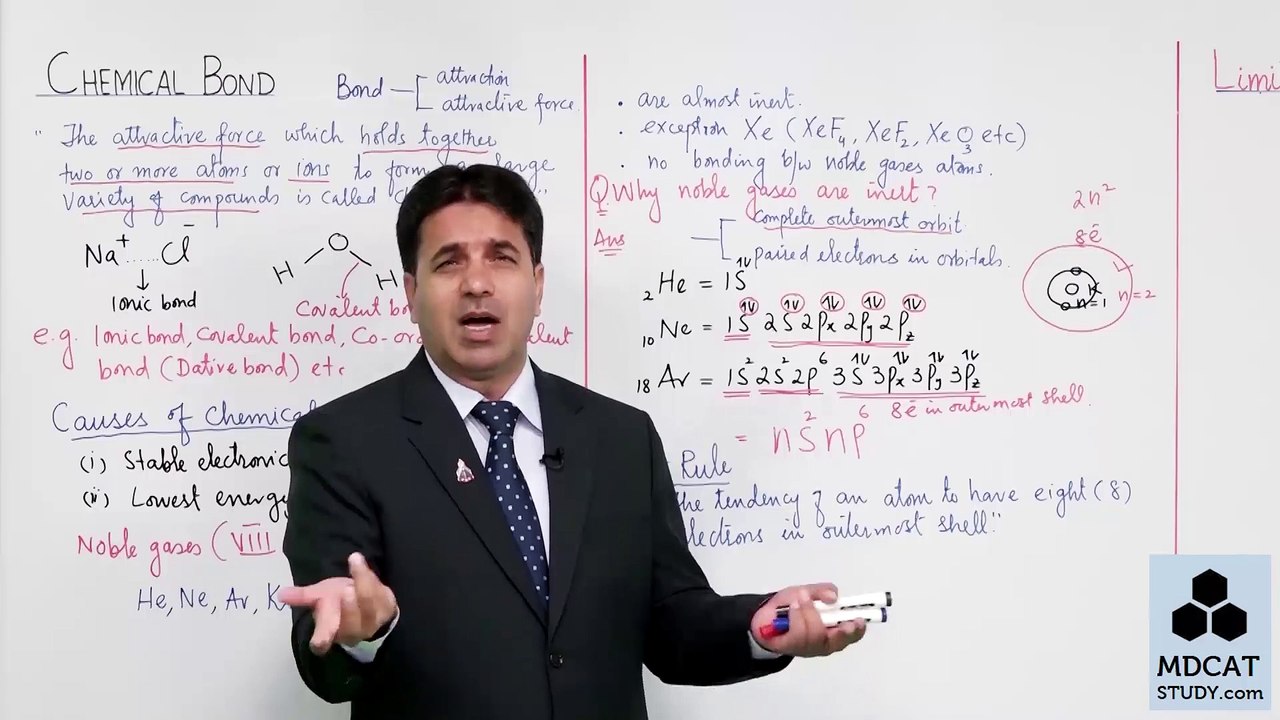 CHEMICAL BOND
Bond
attraction
attractive force
"The attractive force which holds together
two or more atoms or ions to form a large
variety of compounds is called
Na⁺......Cl⁻
Ionic bond
O
H H
Covalent
e.g. Ionic bond, Covalent bond,
bond (Dative bond) etc
Causes of Chemical
(i) Stable electronic
(ii) Lowest energy
Noble gases (VIII
He, Ne, Ar,
. are almost inert.
. exception Xe (XeF₄, XeF₂, XeO₃ etc)
. no bonding b/w noble gases atoms.
Q. Why noble gases are inert?
Ans
Complete outermost orbit
paired electrons in orbitals.
₂He = 1S¹⇂
₁₀Ne = 1S 2S 2px 2py 2pz
₁₈Ar = 1S² 2S² 2p⁶ 3S 3px 3py 3pz
8ē in outermost shell.
= nS² np⁶
Rule
the tendency of an atom to have eight (8)
electrons in outermost shell"
2n²
8ē
n=1
n=2
MDCAT
STUDY.com